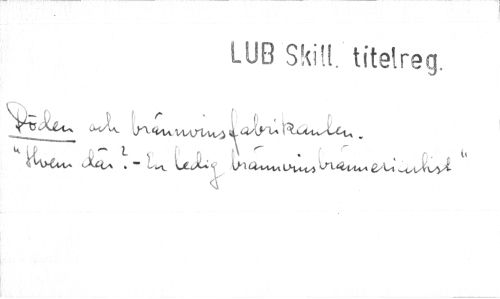 LUB Skill. titelreg.
Döden och brännvinsfabrikanten.
"Hvem där? - En ledig brännvinsbränneri